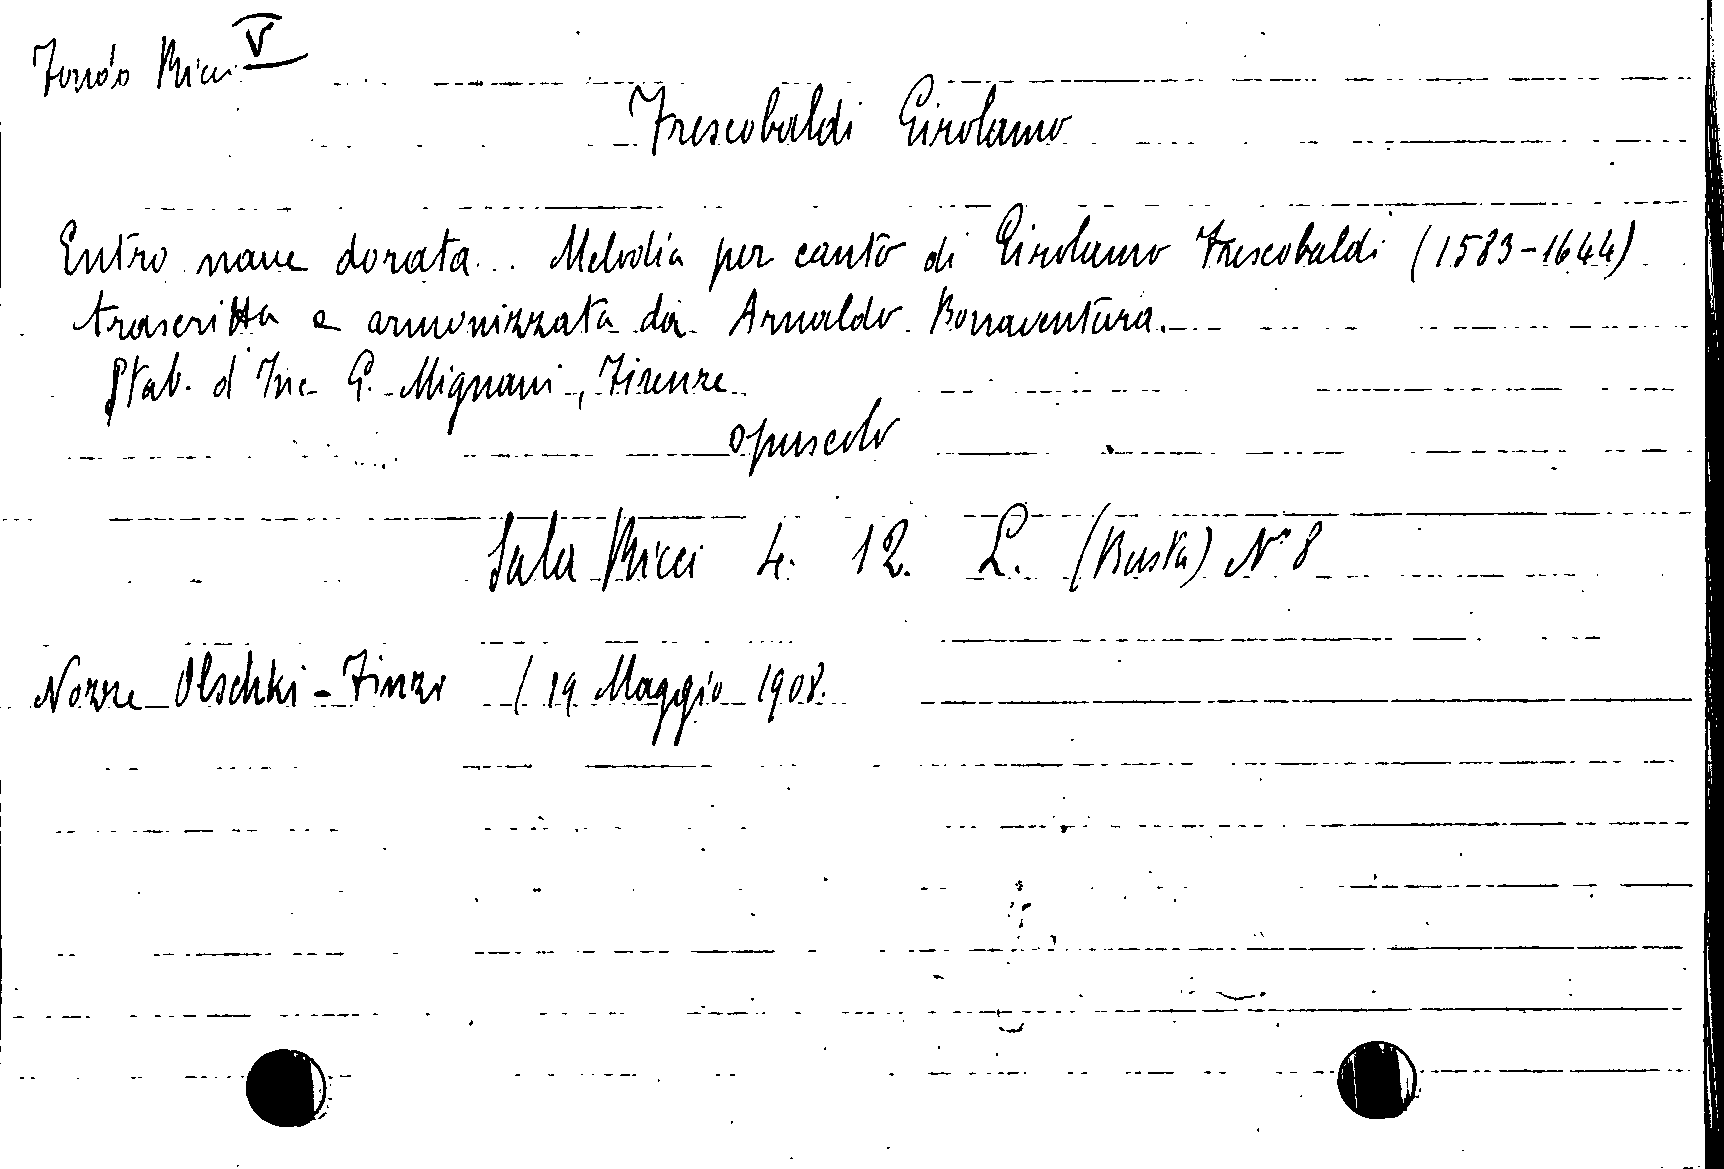 Fondo Ricci V
Frescobaldi Girolamo
Entro nave dorata... Melodia per canto di Girolamo Frescobaldi (1583-1644)
trascritta e armonizzata da Arnaldo Bonaventura.
Stab. d'Inc G. Mignani, Firenze
opuscolo
Sala Ricci 4. 12. L. (Busta) N° 8
Nozze Olschki-Finzi (19 Maggio 1908.